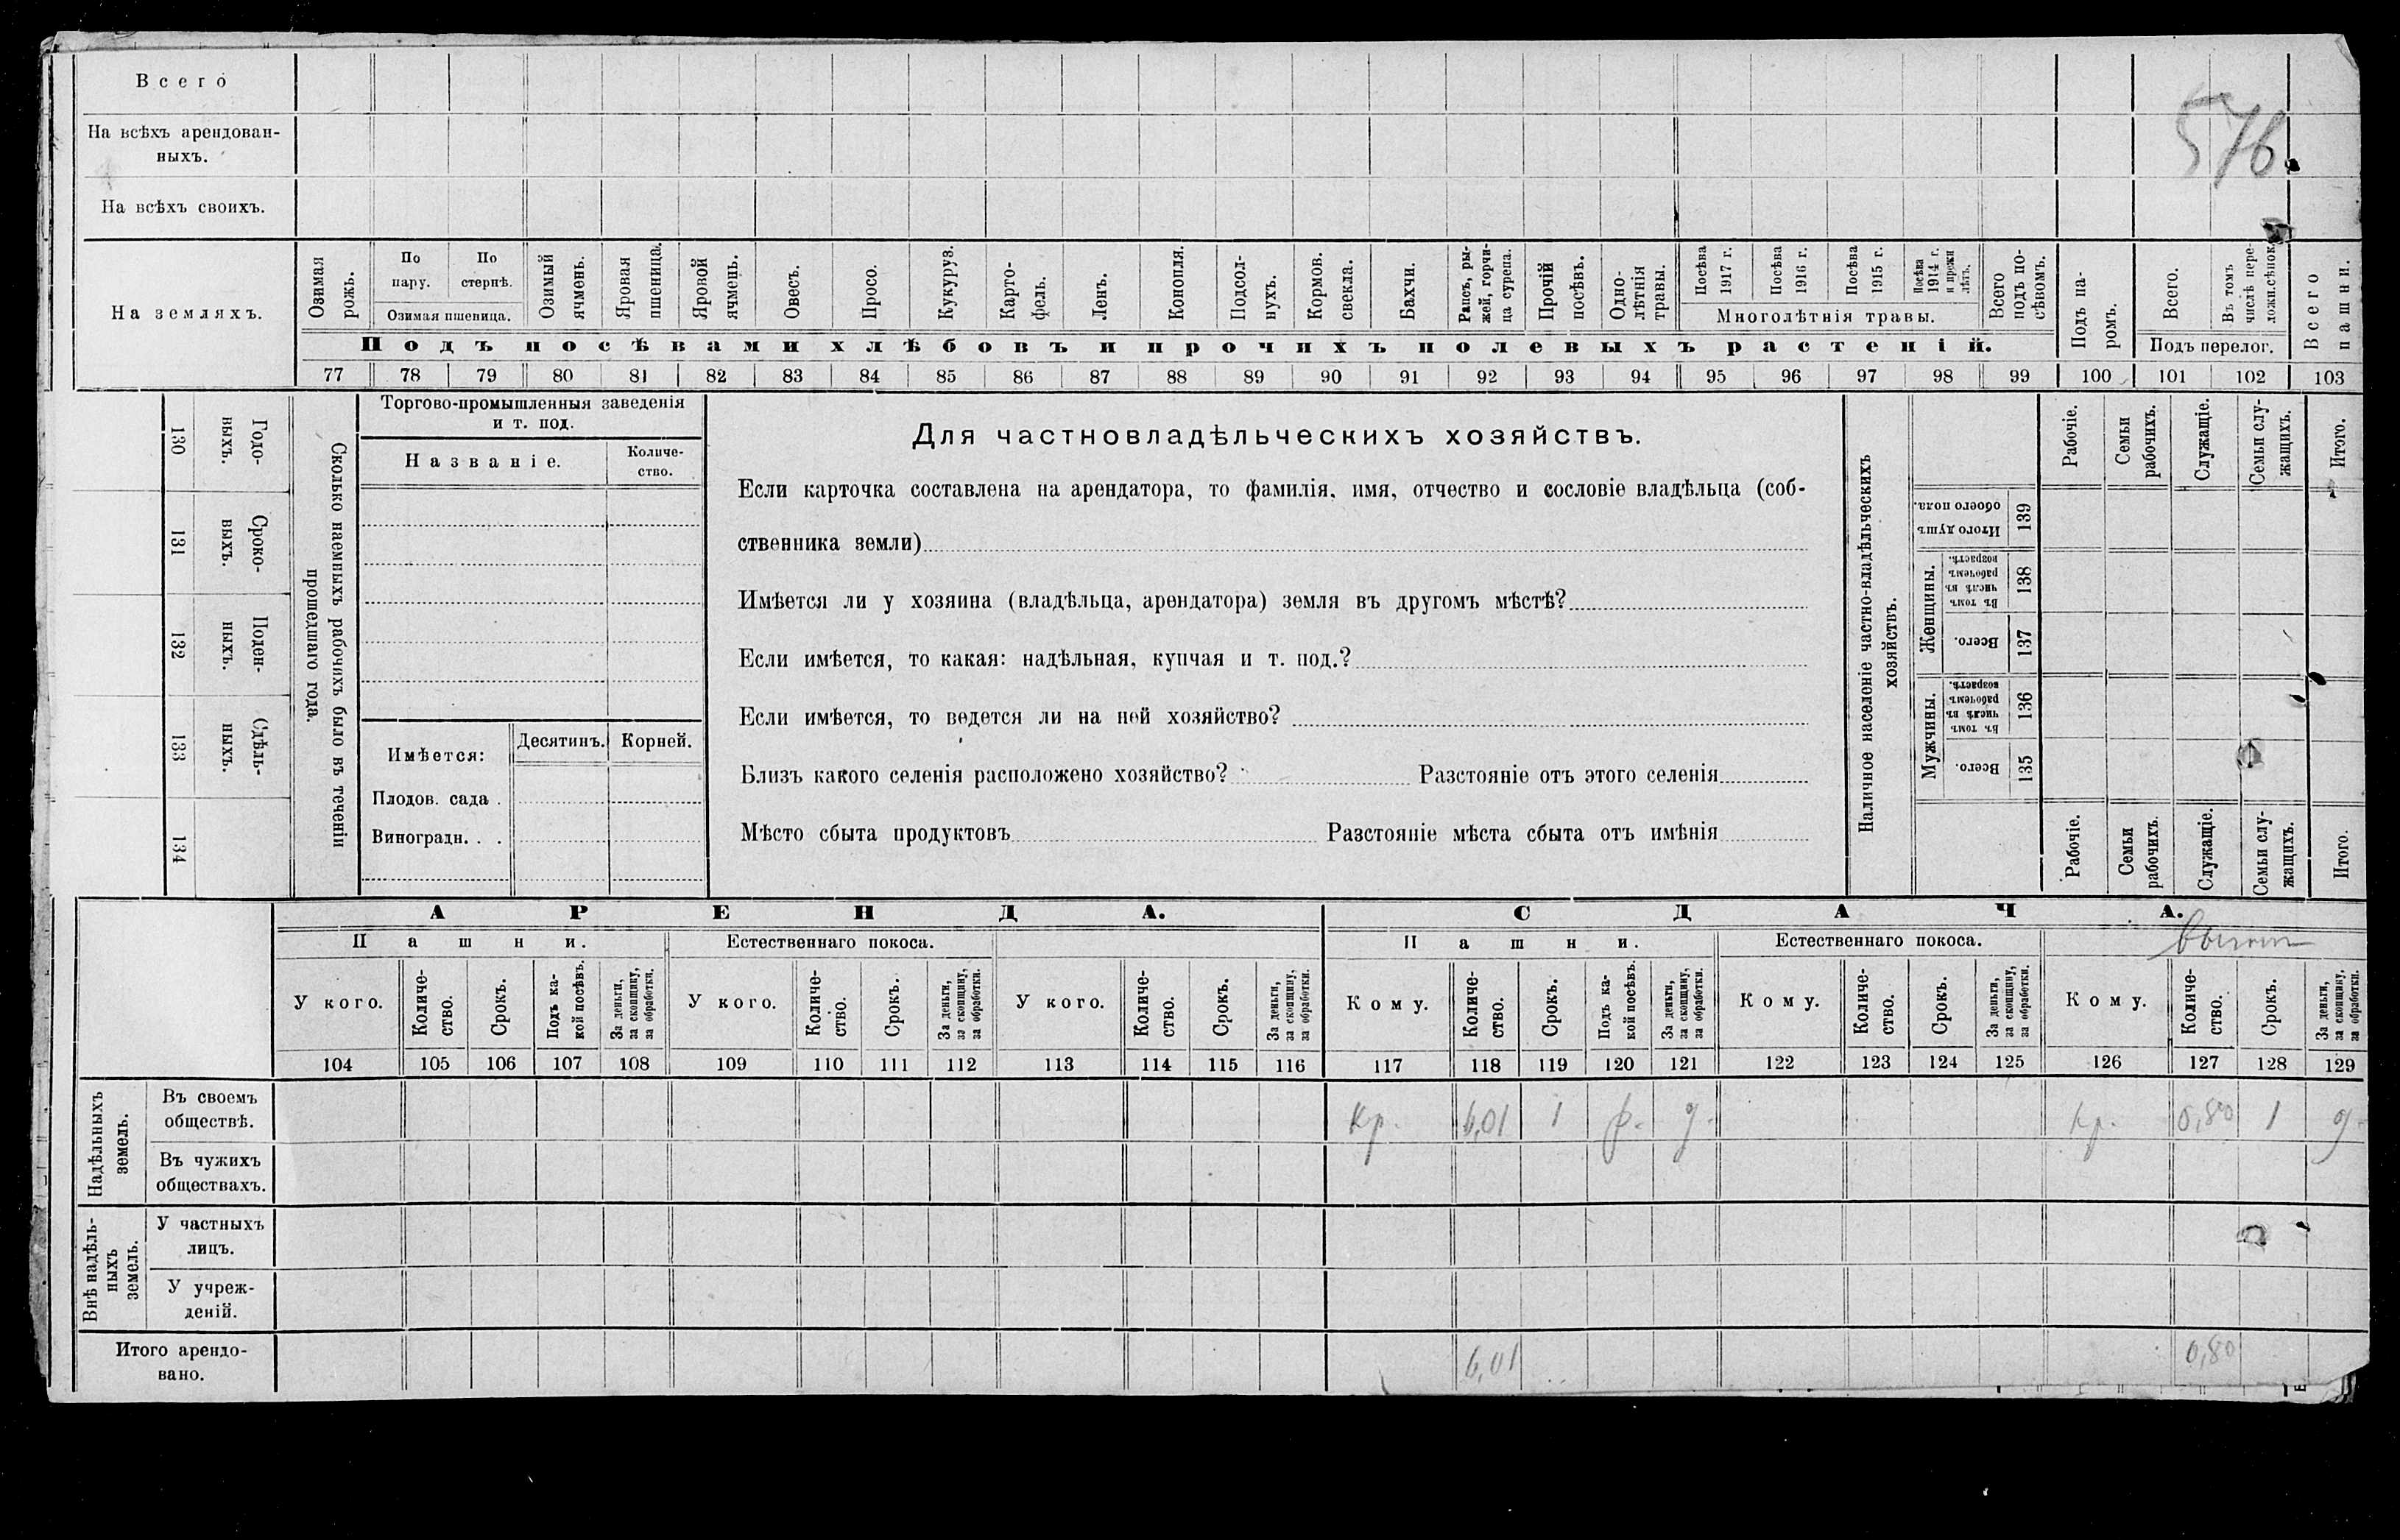 Всего
На всѣхъ арендован-
ныхъ.
576
На всѣхъ своихъ.
На земляхъ.
Озимая рожь.
По пару.
По стернѣ.
Озимая пшеница.
Озимый ячмень.
Яровая пшеница.
Яровой ячмень.
Овесъ.
Просо.
Кукуруз.
Карто-
фель.
Ленъ.
Конопля.
Подсол-
нухъ.
Кормов. свекла.
Бахчи.
Рапсъ, ры-
жей, горчи-
ца сурепа.
Прочій посѣвъ.
Одно-
лѣтнія травы.
Посѣва 1917 г.
Посѣва 1916 г.
Посѣва 1915 г.
Посѣва 1914 г. и прежн лѣтъ.
Многолѣтнія травы.
Всего подъ по-
сѣвомъ.
Подъ па-
ромъ.
Всего.
Въ томъ числѣ пере-
ложн.сѣнок.
Подъ перелог.
Всего пашни.
Подъ посѣвами хлѣбовъ и прочихъ полевыхъ растеній.
77 78 79 80 81 82 83 84 85 86 87 88 89 90 91 92 93 94 95 96 97 98 99 100 101 102 103
130 Годо-
ныхъ.
131 Сроко-
выхъ.
132 Поден-
ныхъ.
133 Сдѣль-
ныхъ.
134
Сколько наемныхъ рабочихъ было въ теченіи
прошедшаго года.
Торгово-промышленныя заведенія
и т. под.
Названіе.
Количе-
ство.
Имѣется:
Десятинъ.
Корней.
Плодов. сада .
Виноградн. . .
Для частновладѣльческихъ хозяйствъ.
Если карточка составлена на арендатора, то фамилія, имя, отчество и сословіе владѣльца (соб-
ственника земли)
Имѣется ли у хозяина (владѣльца, арендатора) земля въ другомъ мѣстѣ?
Если имѣется, то какая: надѣльная, купчая и т. под.?
Если имѣется, то ведется ли на ней хозяйство?
Близъ какого селенія расположено хозяйство? Разстояніе отъ этого селенія
Мѣсто сбыта продуктовъ Разстояніе мѣста сбыта отъ имѣнія
Наличное населеніе частно-владѣльческихъ
хозяйствъ.
Рабочіе.
Семьи рабочихъ.
Служащіе.
Семьи слу-
жащихъ.
Итого.
Итого душъ обоего пола.
139
Женщины.
Въ томъ числѣ въ рабочемъ возрастѣ.
138
Всего.
137
Мужчины.
Въ томъ числѣ въ рабочемъ возрастѣ.
136
Всего.
135
Рабочіе.
Семьи рабочихъ.
Служащіе.
Семьи слу-
жащихъ.
Итого.
АРЕНДА.
СДАЧА.
Пашни.
Естественнаго покоса.
Пашни.
Естественнаго покоса.
У кого.
Количе-
ство.
Срокъ.
Подъ ка-
кой посѣвъ.
За деньги, за скопщину, за обработки.
У кого.
Количе-
ство.
Срокъ.
За деньги, за скопщину, за обработки.
У кого.
Количе-
ство.
Срокъ.
За деньги, за скопщину, за обработки.
Кому.
Количе-
ство.
Срокъ.
Подъ ка-
кой посѣвъ.
За деньги, за скопщину, за обработки.
Кому.
Количе-
ство.
Срокъ.
За деньги, за скопщину, за обработки.
Кому.
Количе-
ство.
Срокъ.
За деньги, за скопщину, за обработки.
104 105 106 107 108 109 110 111 112 113 114 115 116 117 118 119 120 121 122 123 124 125 126 127 128 129
Надѣльныхъ земель.
Въ своемъ
обществѣ.
кр. 6,01 1 р. д. кр. 0,80 1 д.
Въ чужихъ
обществахъ.
Внѣ надѣль-
ныхъ земель.
У частныхъ
лицъ.
У учреж-
деній.
Итого арендо-
вано.
6,01 0,80